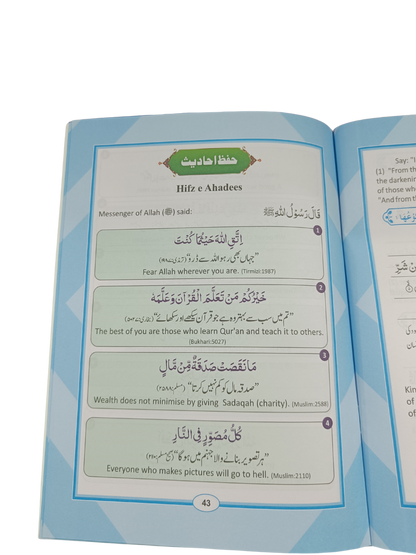 حفظ احادیث
Hifz e Ahadees
Messenger of Allah (ﷺ) said:
قَالَ رَسُوْلُ اللهِ ﷺ
1
اِتَّقِ اللهَ حَيْثُمَا كُنْتَ
"جہاں بھی رہو اللہ سے ڈرو"
Fear Allah wherever you are. (Tirmizi:1987)
2
خَيْرُكُمْ مَنْ تَعَلَّمَ الْقُرْاٰنَ وَعَلَّمَهٗ
"تم میں سب سے بہتر وہ ہے جو قرآن سیکھے اور سکھائے"
The best of you are those who learn Qur'an and teach it to others.
(Bukhari:5027)
3
مَا نَقَصَتْ صَدَقَةٌ مِّنْ مَّالٍ
"صدقہ مال کو کم نہیں کرتا" (مسلم:۲۵۸۸)
Wealth does not minimise by giving Sadaqah (charity). (Muslim:2588)
4
كُلُّ مُصَوِّرٍ فِى النَّارِ
"ہر تصویر بنانے والا جہنم میں ہوگا"
Everyone who makes pictures will go to hell. (Muslim:2110)
43
Say: "I
(1) "From th
the darkenin
of those wh
"And from t
Kin
of
of